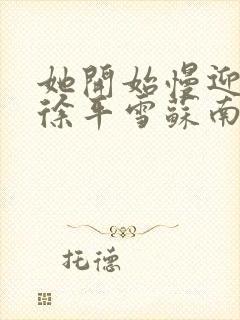 她開始慢迎
徐平雪蘇南
托德